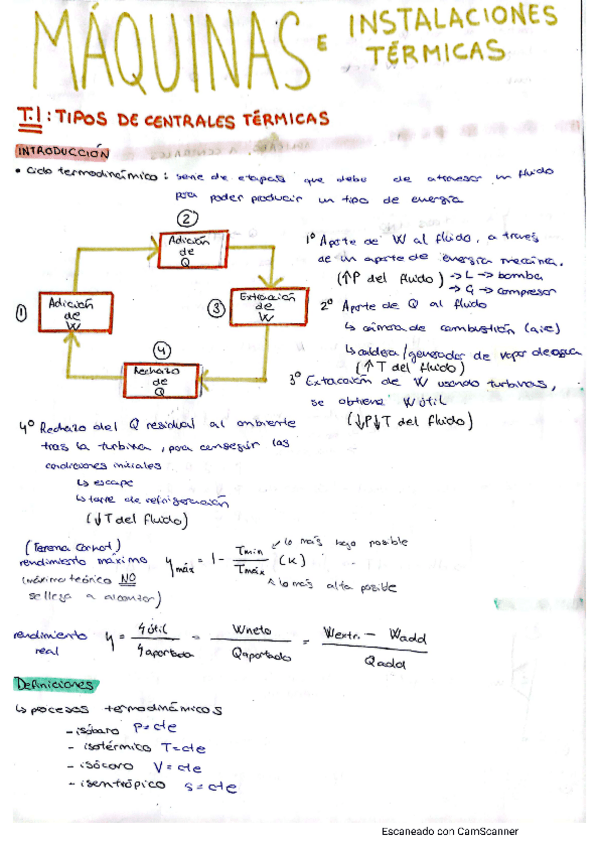 MÁQUINAS E INSTALACIONES TÉRMICAS
T.1: TIPOS DE CENTRALES TÉRMICAS
INTRODUCCIÓN
• Ciclo termodinámico: serie de etapas que debe de atravesar un fluido
para poder producir un tipo de energía
②
Adición de Q
①
Adición de W
③
Extracción de W
④
Rechazo de Q
1º Aporte de W al fluido, a través
de un aporte de energía mecánica.
(↑P del fluido) → L → bomba
→ G → compresor
2º Aporte de Q al fluido
↳ cámara de combustión (aire)
↳ caldera/generador de vapor de agua
(↑T del fluido)
3º Extracción de W usando turbinas,
se obtiene W útil
(↓P↓T del fluido)
4º Rechazo del Q residual al ambiente
tras la turbina, para conseguir las
condiciones iniciales
↳ escape
↳ torre de refrigeración
(↓T del fluido)
(Teorema Carnot)
rendimiento máximo
(máximo teórico NO
se llega a alcanzar)
η máx = 1 - Tmin / Tmáx (K)
lo más bajo posible
lo más alta posible
rendimiento real
η = útil / aportada = Wneto / Qaportado = Wextr. - Wadd / Qadd
Definiciones
↳ procesos termodinámicos
- isóbaro P=cte
- isotérmico T=cte
- isócoro V=cte
- isentrópico s=cte
Escaneado con CamScanner